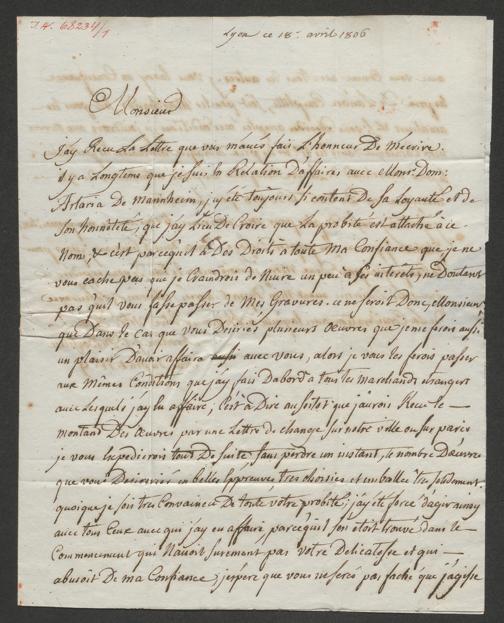 I.N. 68234/1
Lyon ce 18e. avril 1806
Monsieur
J'ay Recu La Lettre que vous m'avés fait L'honneur De m'ecrire.
il y a Longtems que je suis En Relation D'affaires avec Monsr. Dom:
Artaria De Mannheim, j'ay été toujours si content De sa Loyauté et de
son honnêteté, que j'ay Lieu De Croire que La probité est attaché a ce
Nom, & c'est parcequ'il à Des Droits à toute Ma Confiance que je ne
vous cache pas que je Craindrois de Nuire un peu à ses interets, ne Doutant
pas qu'il vous fasse passer de Mes Gravures. ce ne seroit Donc, Monsieur
que Dans le cas que vous Desiriés plusieurs Œuvres que je me ferois aussi
un plaisir D'avoir affaire avec vous, alors je vous les ferois passer
aux Mêmes Conditions que j'ay fais D'abord a tous les Marchands etrangers
avec Lesquels j'ay Eu affaire, C'est à Dire aussitot que j'aurois Recu le —
montand Des Œuvres par une Lettre de change sur notre ville ou sur paris
je vous Expedierois tout De Suite, sans perdre un instant, le nombre D'œuvres
que vous Desireriés en belles Epreuves tres choisies et emballée tres solidement.
quoique je sois tres Convaincu De toute votre probité; j'ay été forcé d'agir ainsy
avec tous Ceux avec qui j'ay eu affaire, parcequ'il s'en etoit trouvé Dans le
Commencement qui N'avoit surement pas votre Delicatesse et qui —
abusoit De ma Confiance, j'espere que vous ne serés pas faché que j'agisse